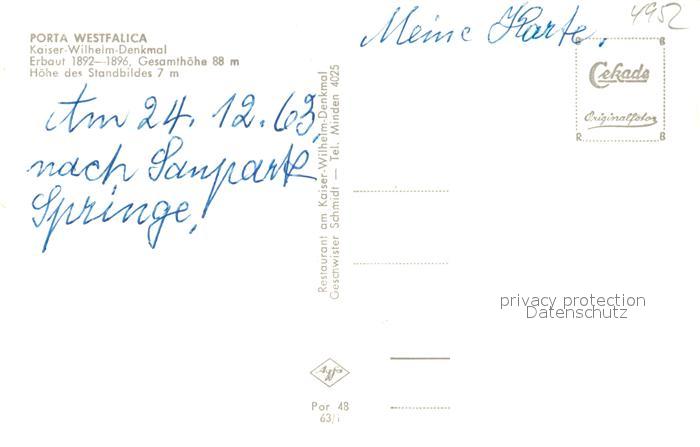 PORTA WESTFALICA
Kaiser-Wilhelm-Denkmal
Erbaut 1892—1896, Gesamthöhe 88 m
Höhe des Standbildes 7 m
Am 24. 12. 63,
nach Saupark
Springe!
Restaurant am Kaiser-Wilhelm-Denkmal
Geschwister Schmidt — Tel. Minden 4025
Meine Karte.
4952
R B
Cekade
Originalfotos
R B
privacy protection
Datenschutz
Agfa
Por 48
63/1